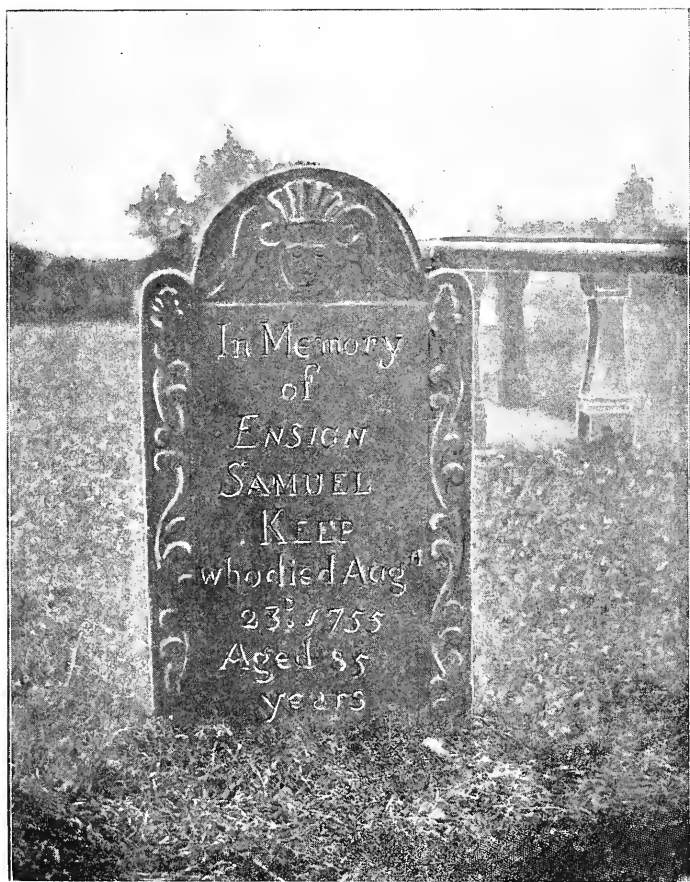 In Memory
of
ENSIGN
SAMUEL
KEEP
who died Augst
23d. 1755
Aged 85
years